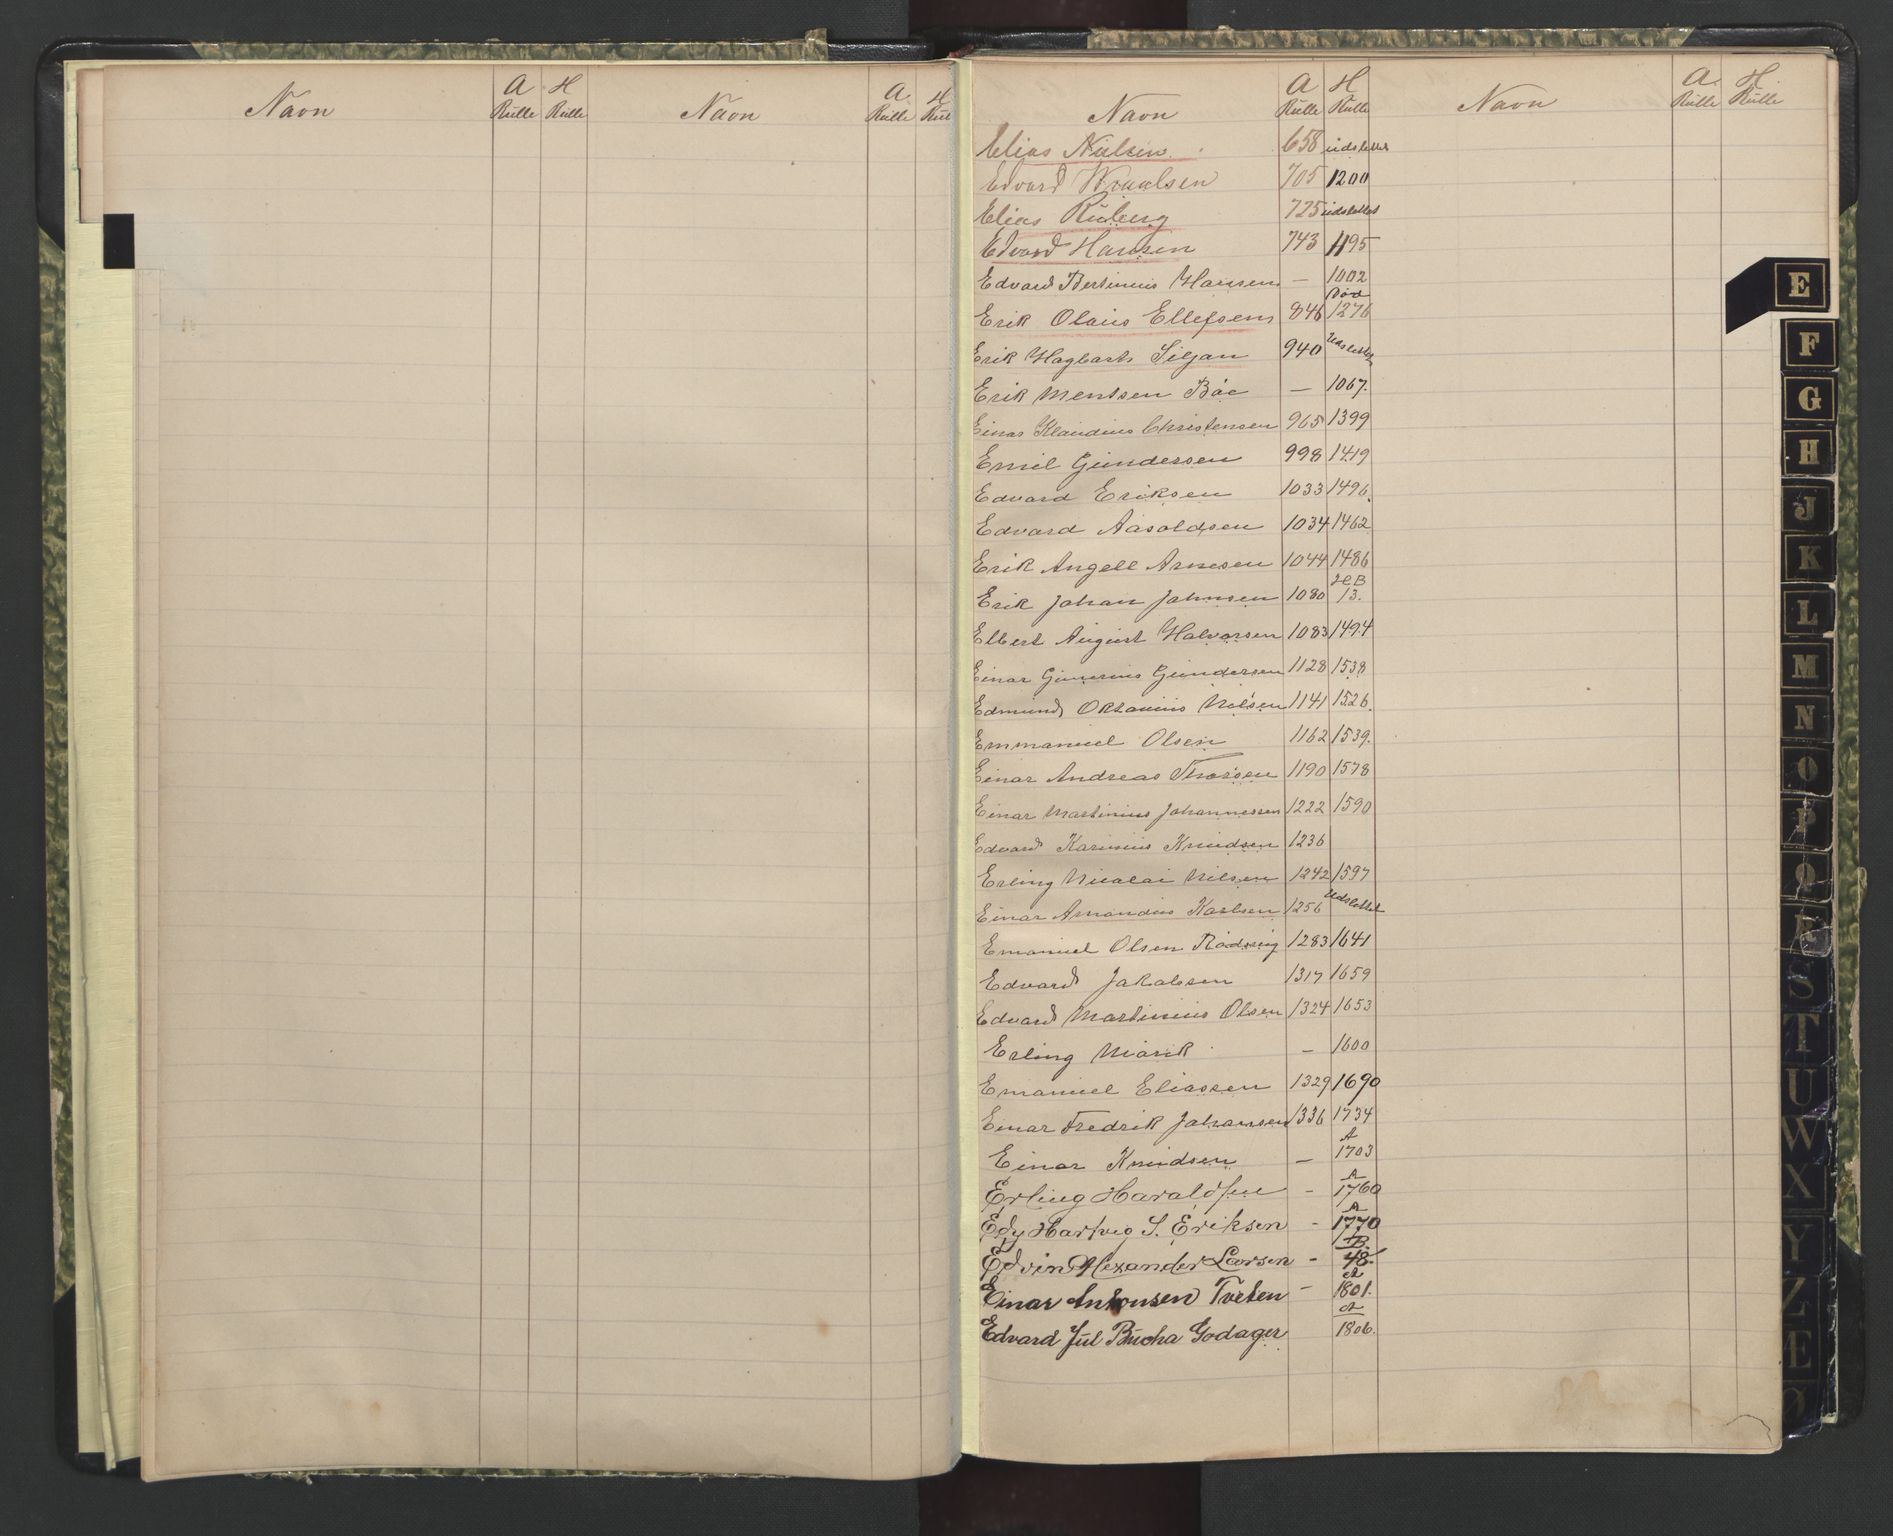 Navn A Rulle H Rulle Navn A Rulle H Rul
Navn A Rulle H Rulle Navn A Rulle H Rulle
Elias Nielsen 658 udslettet
Edvard 705 1200
Elias Ruberg 725 udslettet
Edvard Hansen 743 1195
Edvard Bertinius Hansen — 1002
Død
Erik Olaus Ellefsen 846 1276
Erik Hagbarth Siljan 940 Udslettet
Erik Mentsen Bøe — 1067.
Einar Klaudius Christensen 965 1399
Emil Gundersen 998 1419
Edvard Eriksen 1033 1496.
Edvard Aasoldsen 1034 1462
Erik Angell Arnesen 1044 1486
Erik Johan Johnsen 1080 13.
Elbert August Halvorsen 1083 1494
Einar Gunerius Gundersen 1128 1538
Edmund Oktavius Nilsen 1141 1526.
Emmanuel Olsen 1162 1539.
Einar Andreas Thorsen 1190 1578
Einar Martinius Johannessen 1222 1590
Edvard Karinius Knudsen 1236
Erling Nicolai Nilsen 1242 1597
Einar Amandus Karlsen 1256 Udslettet
Emanuel Olsen Rødseig 1283 1641
Edvard Jakobsen 1317 1659
Edvard Martinius Olsen 1324 1653
Erling Mørik — 1600
Emanuel Eliassen 1329 1690
Einar Fredrik Johansen 1336 1734
A
Einar Knudsen — 1703
A
Erling Haraldsen - 1760
A
Edy Hartvig S. Eriksen - 1770
B.
Edvin Alexander Larsen - 48.
A
Einar Antonsen Tveten - 1801.
A
Edvard Jul Bucha Godager 1806.
E
F
G
H
J
K
L
M
N
O
P
Q
R
S
T
U
W
X
Y
Z
Æ
Ø